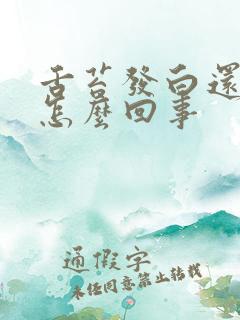 舌苔發白還
怎麼回事
通假字
未经同意禁止转载